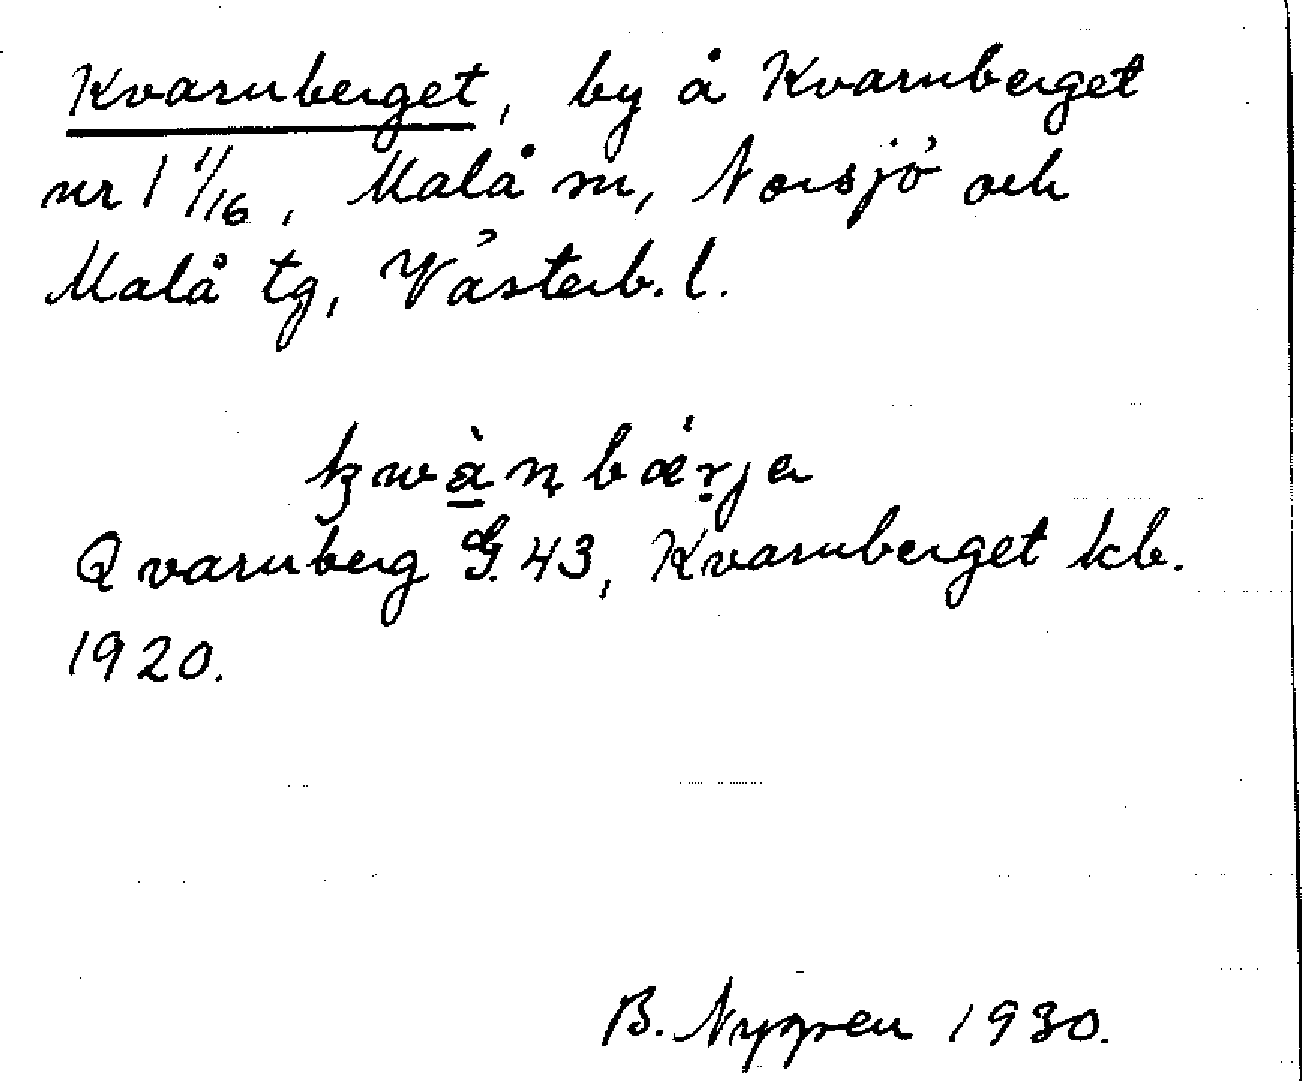 Kvarnberget, by å Kvarnberget
nr 1 1/16, Malå sn, Norsjö och
Malå tg, Västerb. l.
kwànbǽrja
Qvarnberg G. 43, Kvarnberget kb.
1920.
B. Nygren 1930.